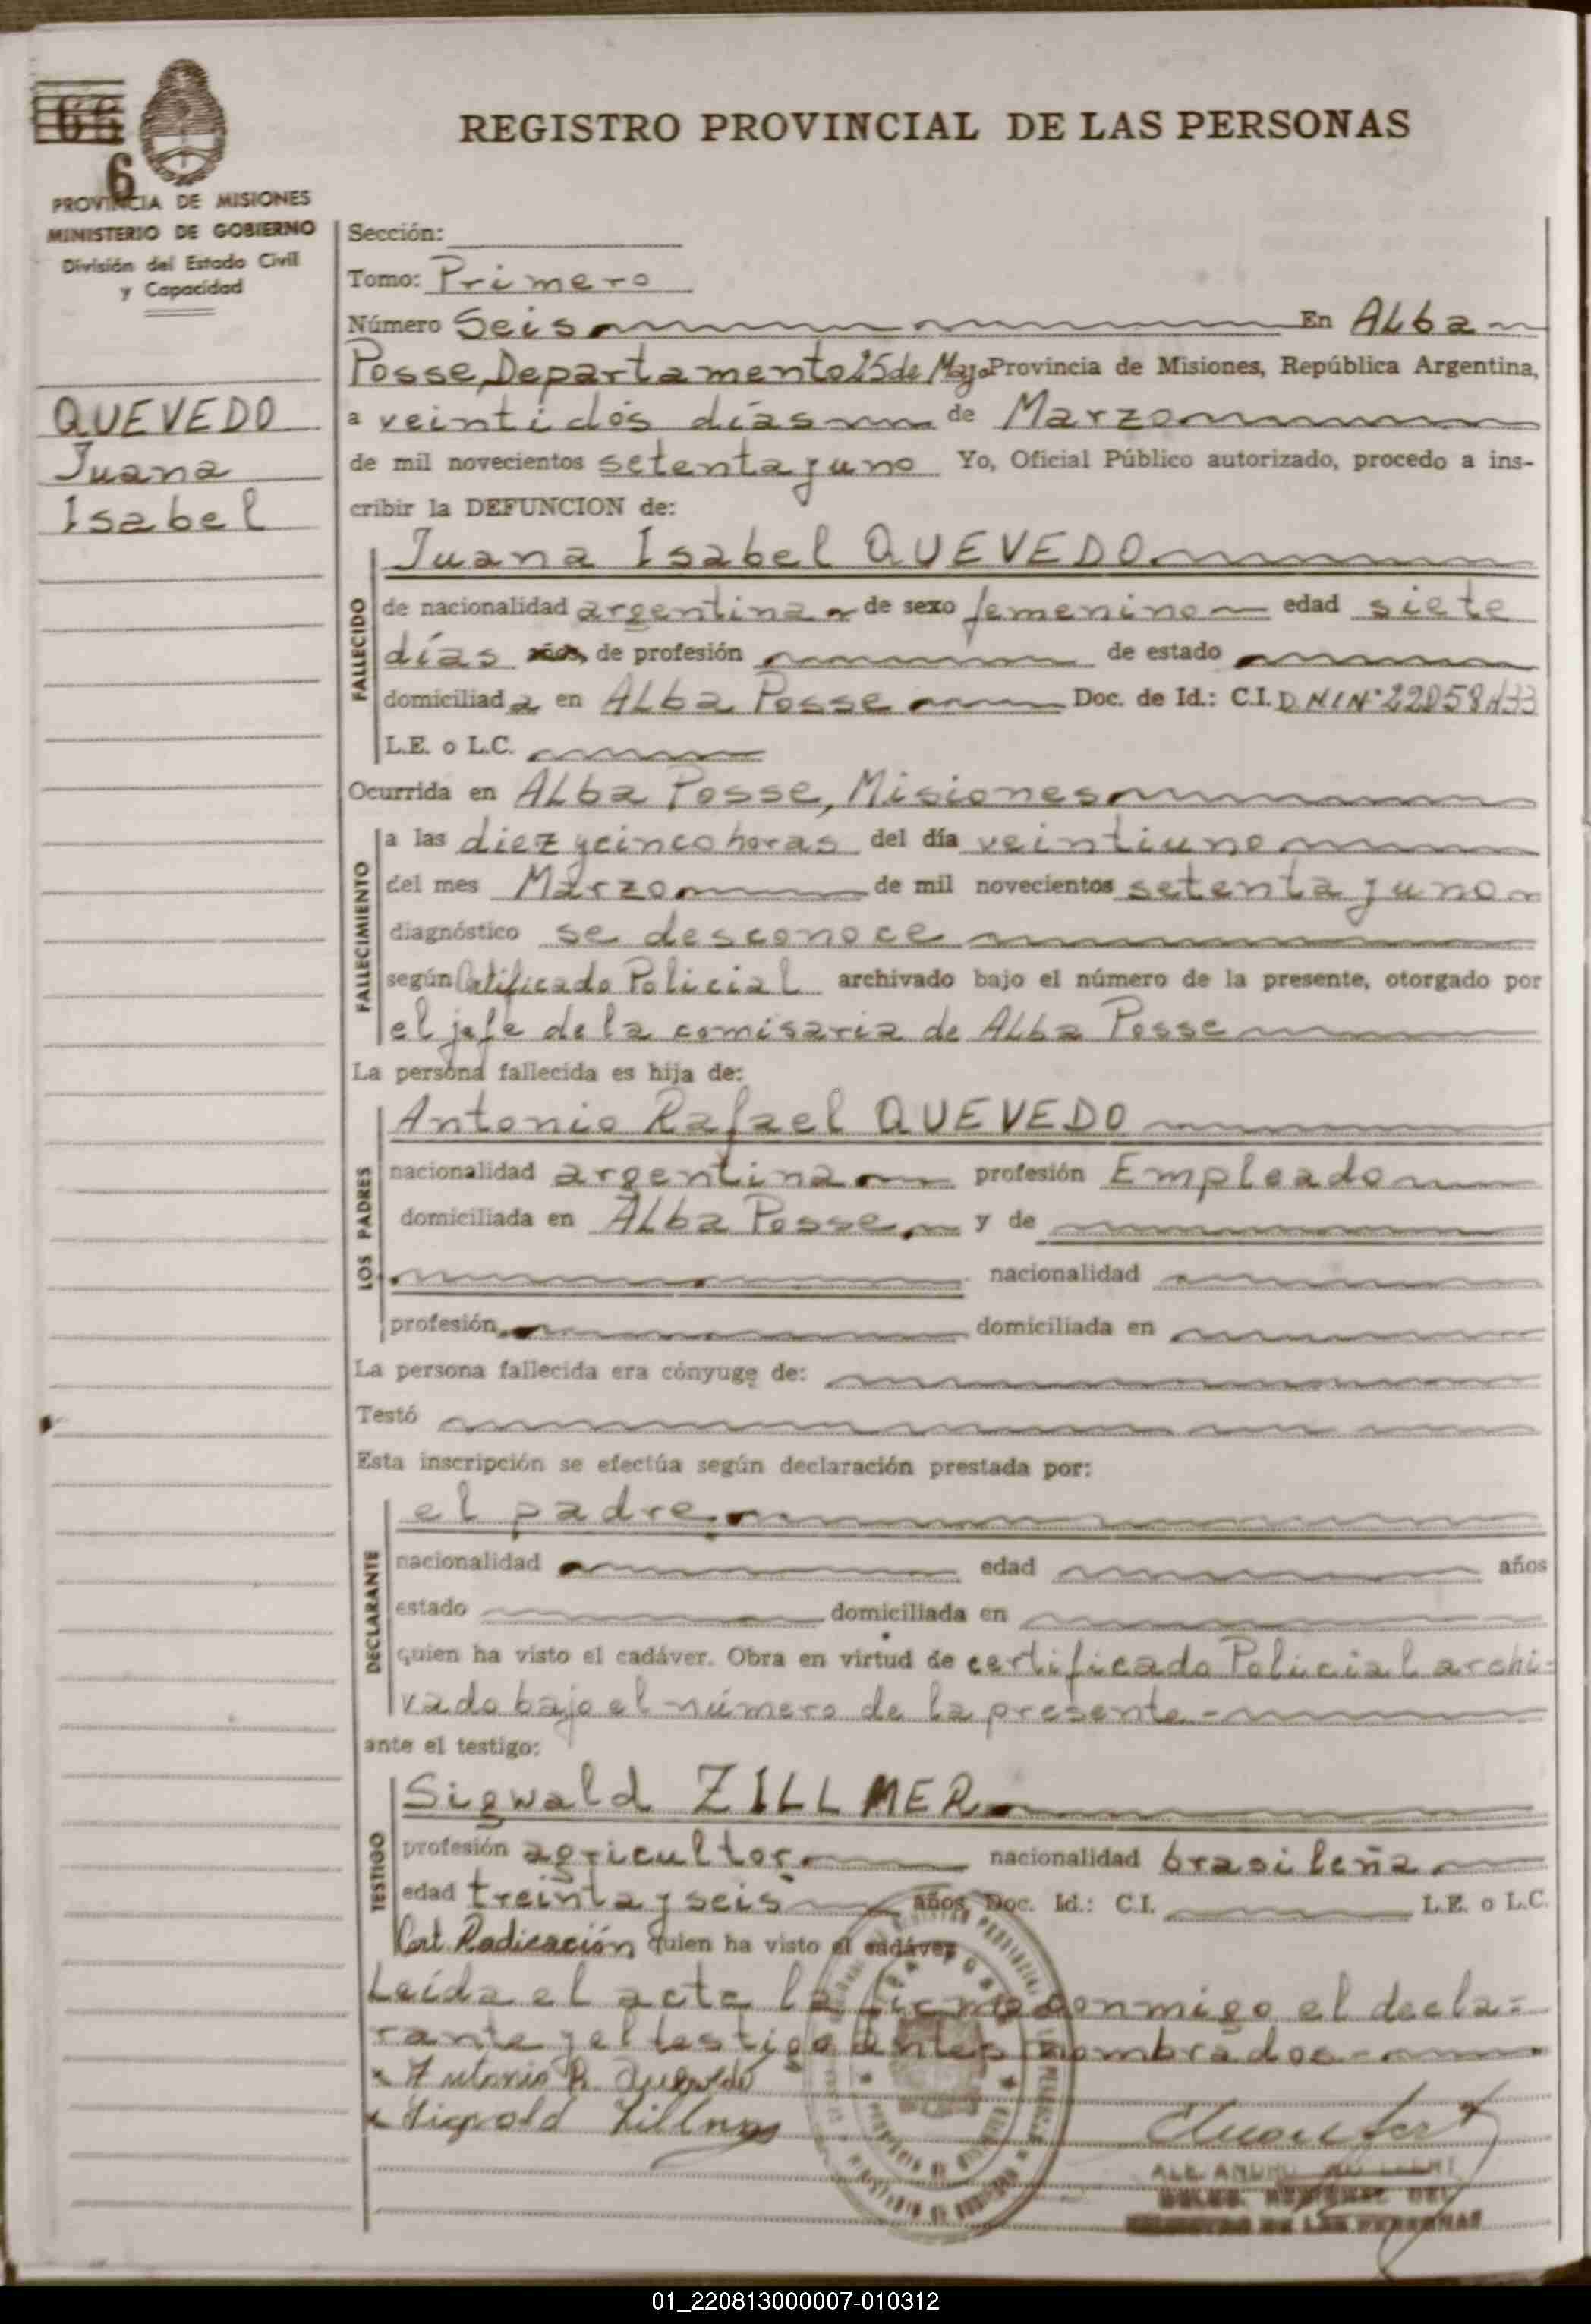 66
6
PROVINCIA DE MISIONES
MINISTERIO DE GOBIERNO
División del Estado Civil
y Capacidad
REGISTRO PROVINCIAL DE LAS PERSONAS
QUEVEDO
Juana
Isabel
Sección:
Tomo: Primero
Número Seis En Alba
Posse, Departamento 25 de Mayo Provincia de Misiones, República Argentina,
a veintidós días de Marzo
de mil novecientos setenta y uno Yo, Oficial Público autorizado, procedo a ins-
cribir la DEFUNCION de:
FALLECIDO
Juana Isabel QUEVEDO
de nacionalidad argentina de sexo femenino edad siete
días años, de profesión de estado
domiciliada en Alba Posse Doc. de Id.: C.I. DNI Nº
L.E. o L.C.
Ocurrida en Alba Posse, Misiones
FALLECIMIENTO
a las diez y cinco horas del día veintiuno
del mes Marzo de mil novecientos setenta y uno
diagnóstico se desconoce
según Certificado Policial archivado bajo el número de la presente, otorgado por
el jefe de la comisaria de Alba Posse
La persona fallecida es hija de:
LOS PADRES
Antonio Rafael QUEVEDO
nacionalidad argentina profesión Empleado
domiciliada en Alba Posse y de
nacionalidad
profesión domiciliada en
La persona fallecida era cónyuge de:
Testó
Esta inscripción se efectúa según declaración prestada por:
DECLARANTE
el padre
nacionalidad edad años
estado domiciliada en
quien ha visto el cadáver. Obra en virtud de certificado Policial archi-
vado bajo el número de la presente
ante el testigo:
TESTIGO
Sigwald ZILLMER
profesión agricultor nacionalidad brasileña
edad treinta y seis años, Doc. Id.: C.I. L.E. o L.C.
Cert. Radicación quien ha visto el cadáver
Leída el acta la firma conmigo el decla-
rante y el testigo antes nombrados
x Antonio R. Quevedo
x Sigvald Zillmer
REGISTRO DE LAS PERSONAS
01_220813000007-010312